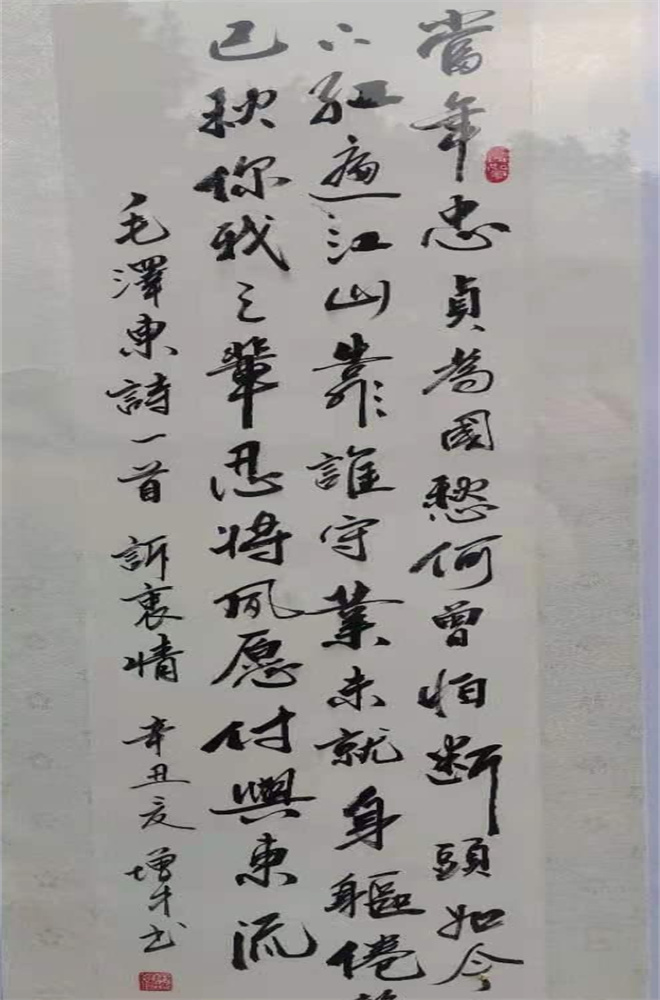 當年忠貞為國愁何曾怕断頭如今
下红遍江山靠誰守業未就身軀倦
已秋你我之輩忍将夙愿付與東流
毛澤東詩一首 訴衷情 辛丑夏 增才书